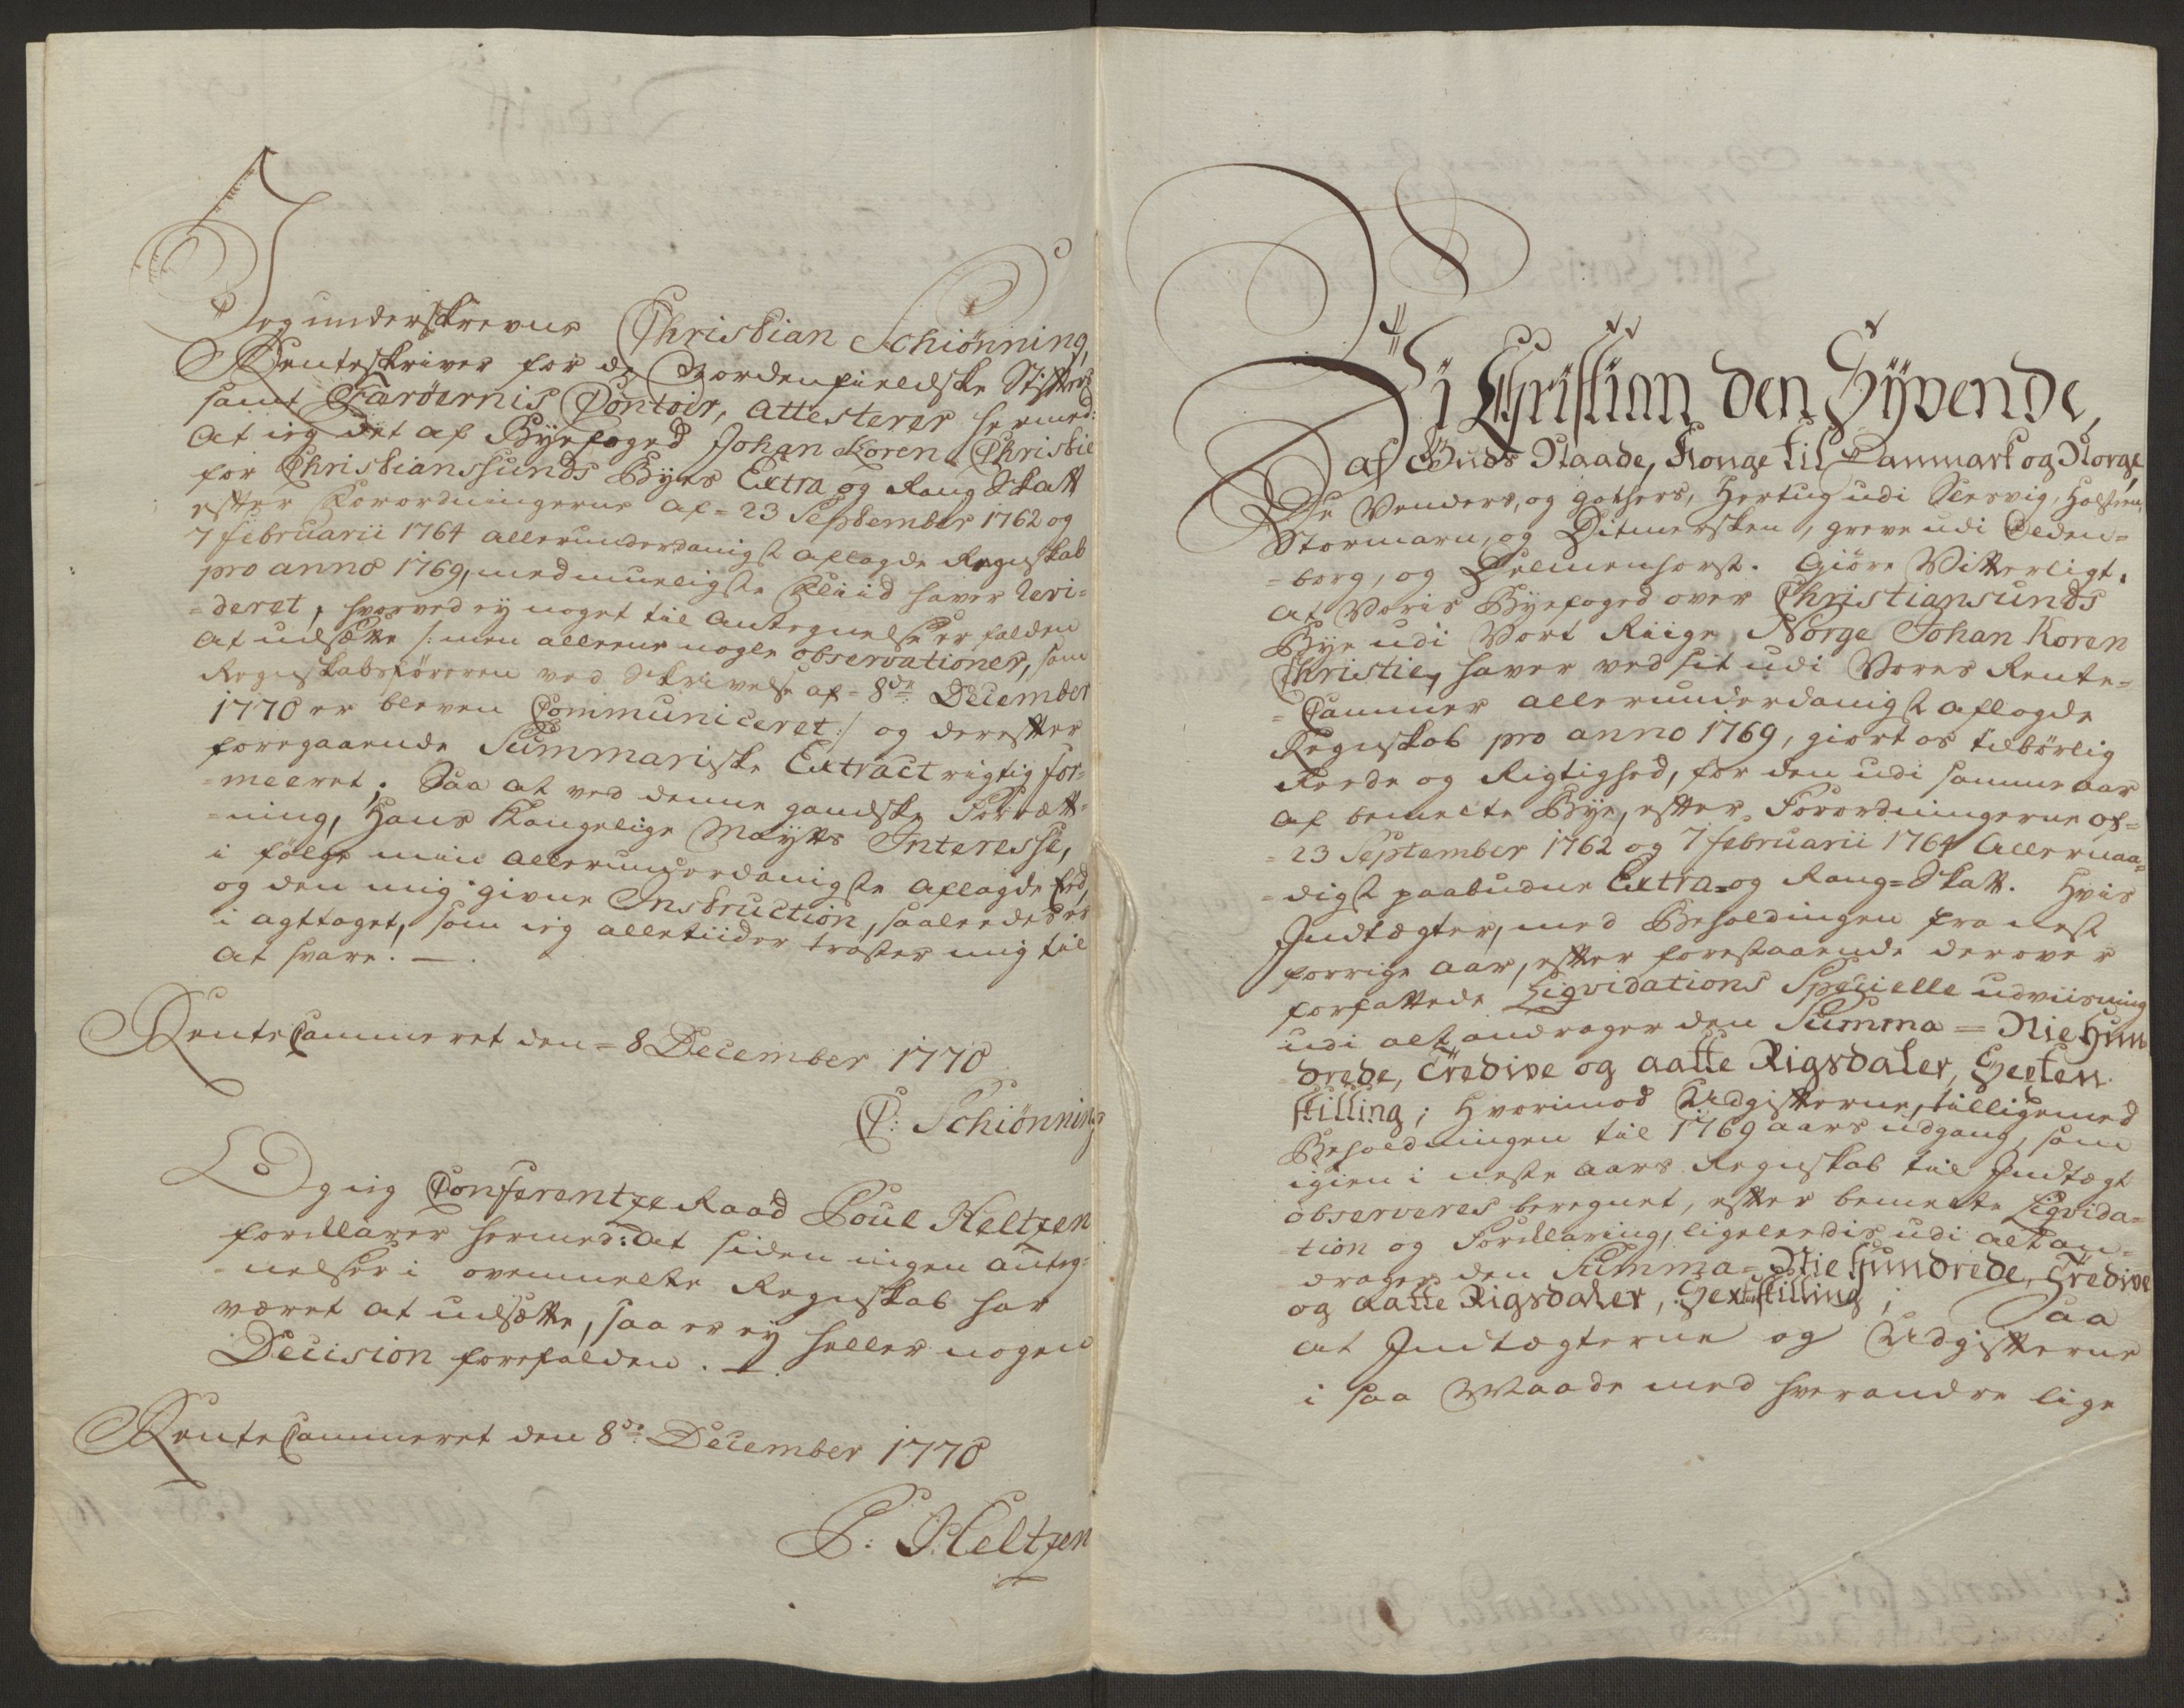 Jeg underskrevne Christian Schiönning,
Renteskriver for de Nordenfieldske Stifters
samt Færöernis Contoir, Attesterer hermed:
At ieg det af Byefoged Johan Koren Christie
for Christianssunds Byes Extra og Rang Skatt
efter Forordningerne af = 23 September 1762 og
7 Februarii 1764 allerunderdanigst aflagde Regnskab
pro anno 1769, med mueligste Fliid haver Revi-
=deret, hvorved ey noget til Antegnelse er falden
at udsætte /: men alleene nogle observationer, som
Regnskabsföreren ved Skrivelse af = 8de December
1770 er bleven Communiceret :/ og derefter
foregaaende Summariske Extract rigtig for-
=meeret; Saa at ved denne gandske Forrætt-
=ning, Hans Kongelige Maytts Interesse,
i fölge min allerunderdanigste aflagde Eed,
og den mig givne Instruction, saaledes er
i agttaget, som ieg alletiider tröster mig til
at svare. —.
RenteCammeret den = 8 December 1770
C: Schiönning
Og ieg ConferentzeRaad Poul Heltzen
forklarer hermed: At siden ingen anteg-
=nelser i ovenmelte Regnskab har
været at udsætte, saa er ey heller nogen
Decision forefalden. —.
RenteCammeret den 8de December 1770
P: Heltzen
Vi Christian den Syvende,
af Guds Naade, Konge til Danmark og Norge,
De Venders, og Gothers, Hertug udi Slesvig, Holsteen,
Stormarn, og Ditmersken, greve udi Olden-
=borg, og Delmenhorst. Giöre Vitterligt,
at Voris Byefoged over Christiansunds
Bye udi Vort Riige Norge Johan Koren
Christie, haver ved sit udi Vores Rente-
=Cammer allerunderdanigst aflagde
Regnskab pro anno 1769, giort os tilbörlig
Reede og Rigtighed, for den udi samme aar
af bemelte Bye, efter Forordningerne af-
=23 September 1762 og 7 Februarii 1764 Allernaa-
=digst paabudne Extra= og Rang=Skatt. Hvis
Indtægter, med Beholdingen fra nest
forrige Aar, efter forestaaende derover
forfattede Liqvidations Specielle udviisning
udi alt andrager den Summa = Nie Hun
drede, Tredive og aatte Rigsdaler, Sexten
skilling; Hvorimod Udgifterne, tilligemed
Beholdningen til 1769 aars udgang, som
igien i neste Aars Regnskab til Indtægt
observeres beregnet, efter bemelte Liqvida-
=tion og Forklaring, ligeleedis udi alt an-
=drager den Summa = Nie Hundrede, Tredive
og aatte Rigsdaler, Sexten skilling; Saa
at Indtægterne og Udgifterne
i saa Maade med hverandre lige